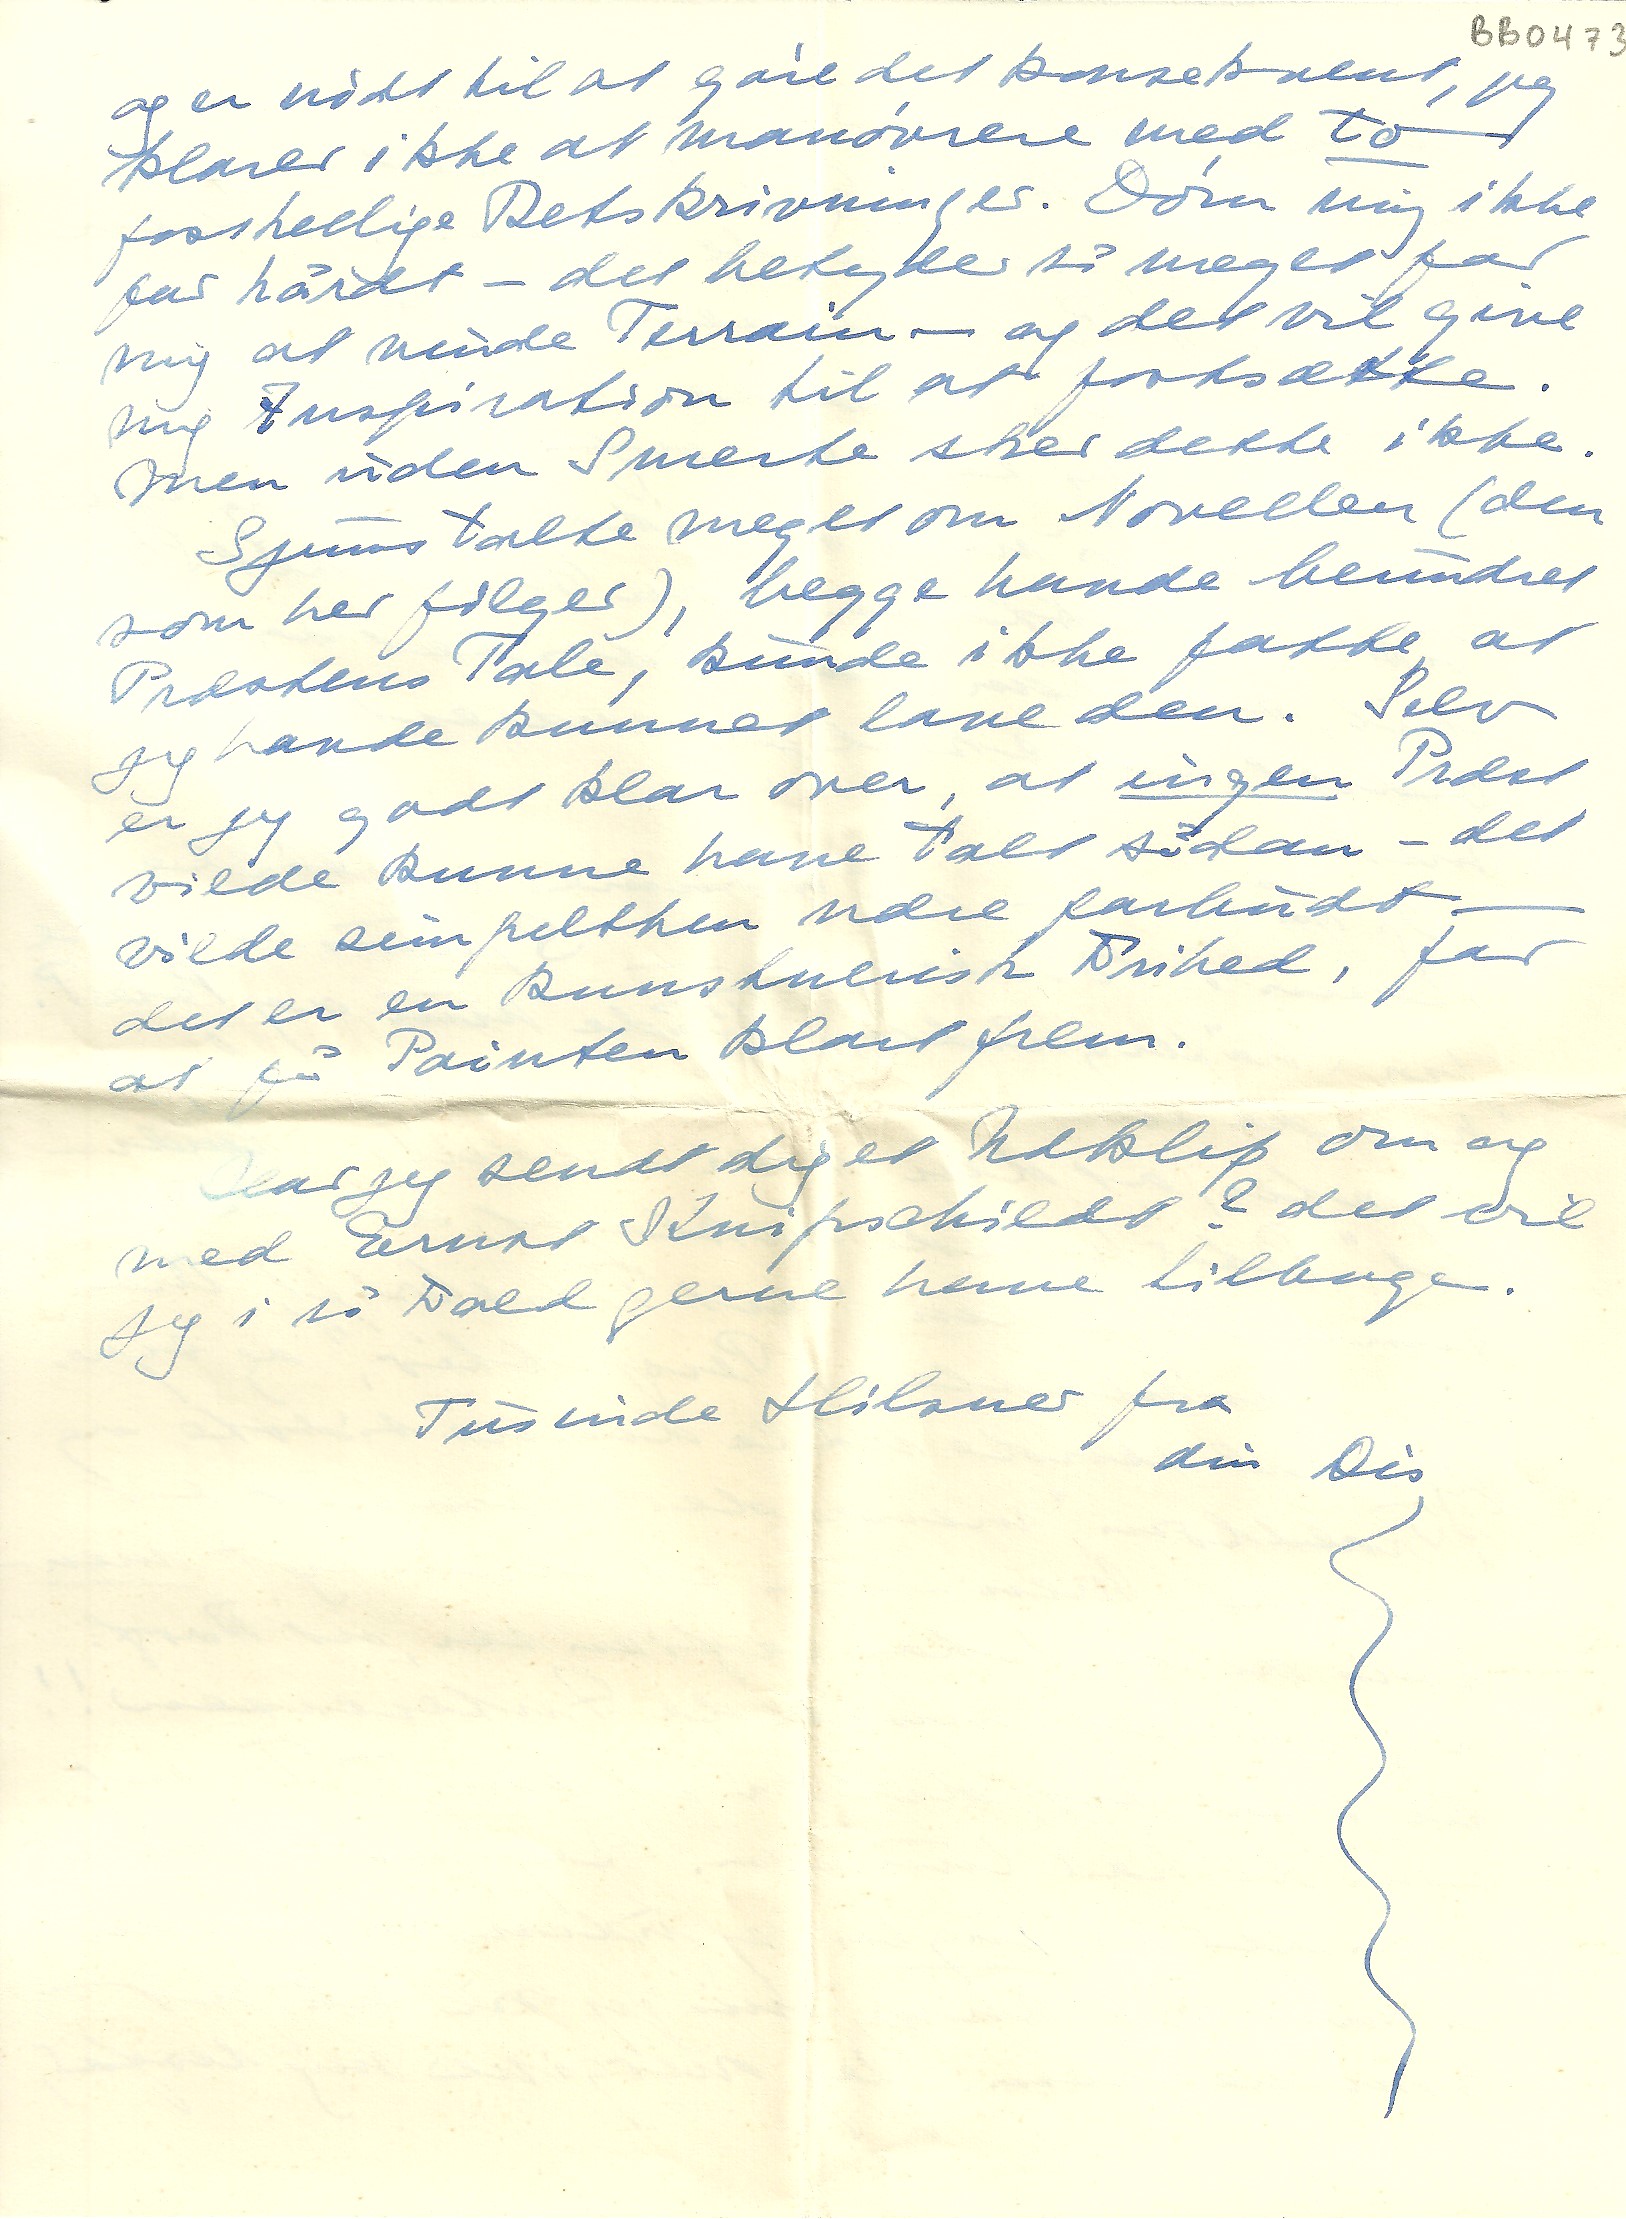 BB0473
og er nødt til at gøre det konsekvent, jeg
klarer ikke at manøvrere med to
forskellige Retskrivninger. Døm mig ikke
for hårdt – det betyder så meget for
mig at vinde Terrain – og det vil give
mig Inspiration til at fortsætte.
Men uden Smerte sker dette ikke.
talte meget om Novellen (den
som her følger), begge havde beundret
Præstens Tale, kunde ikke fatte, at
jeg havde kunnet lave den. Selv
er jeg godt klar over, at ingen Præst
vilde kunne have talt sådan – det
vilde simpelthen være forbudt –
det er en kunstnerisk Frihed, for
at få Pointen klart frem.
Har jeg sendt dig et Udklip om og
med Ernst Knipschildt? det vil
jeg i så Fald gerne have tilbage.
Tusinde Hilsner fra
din Dis